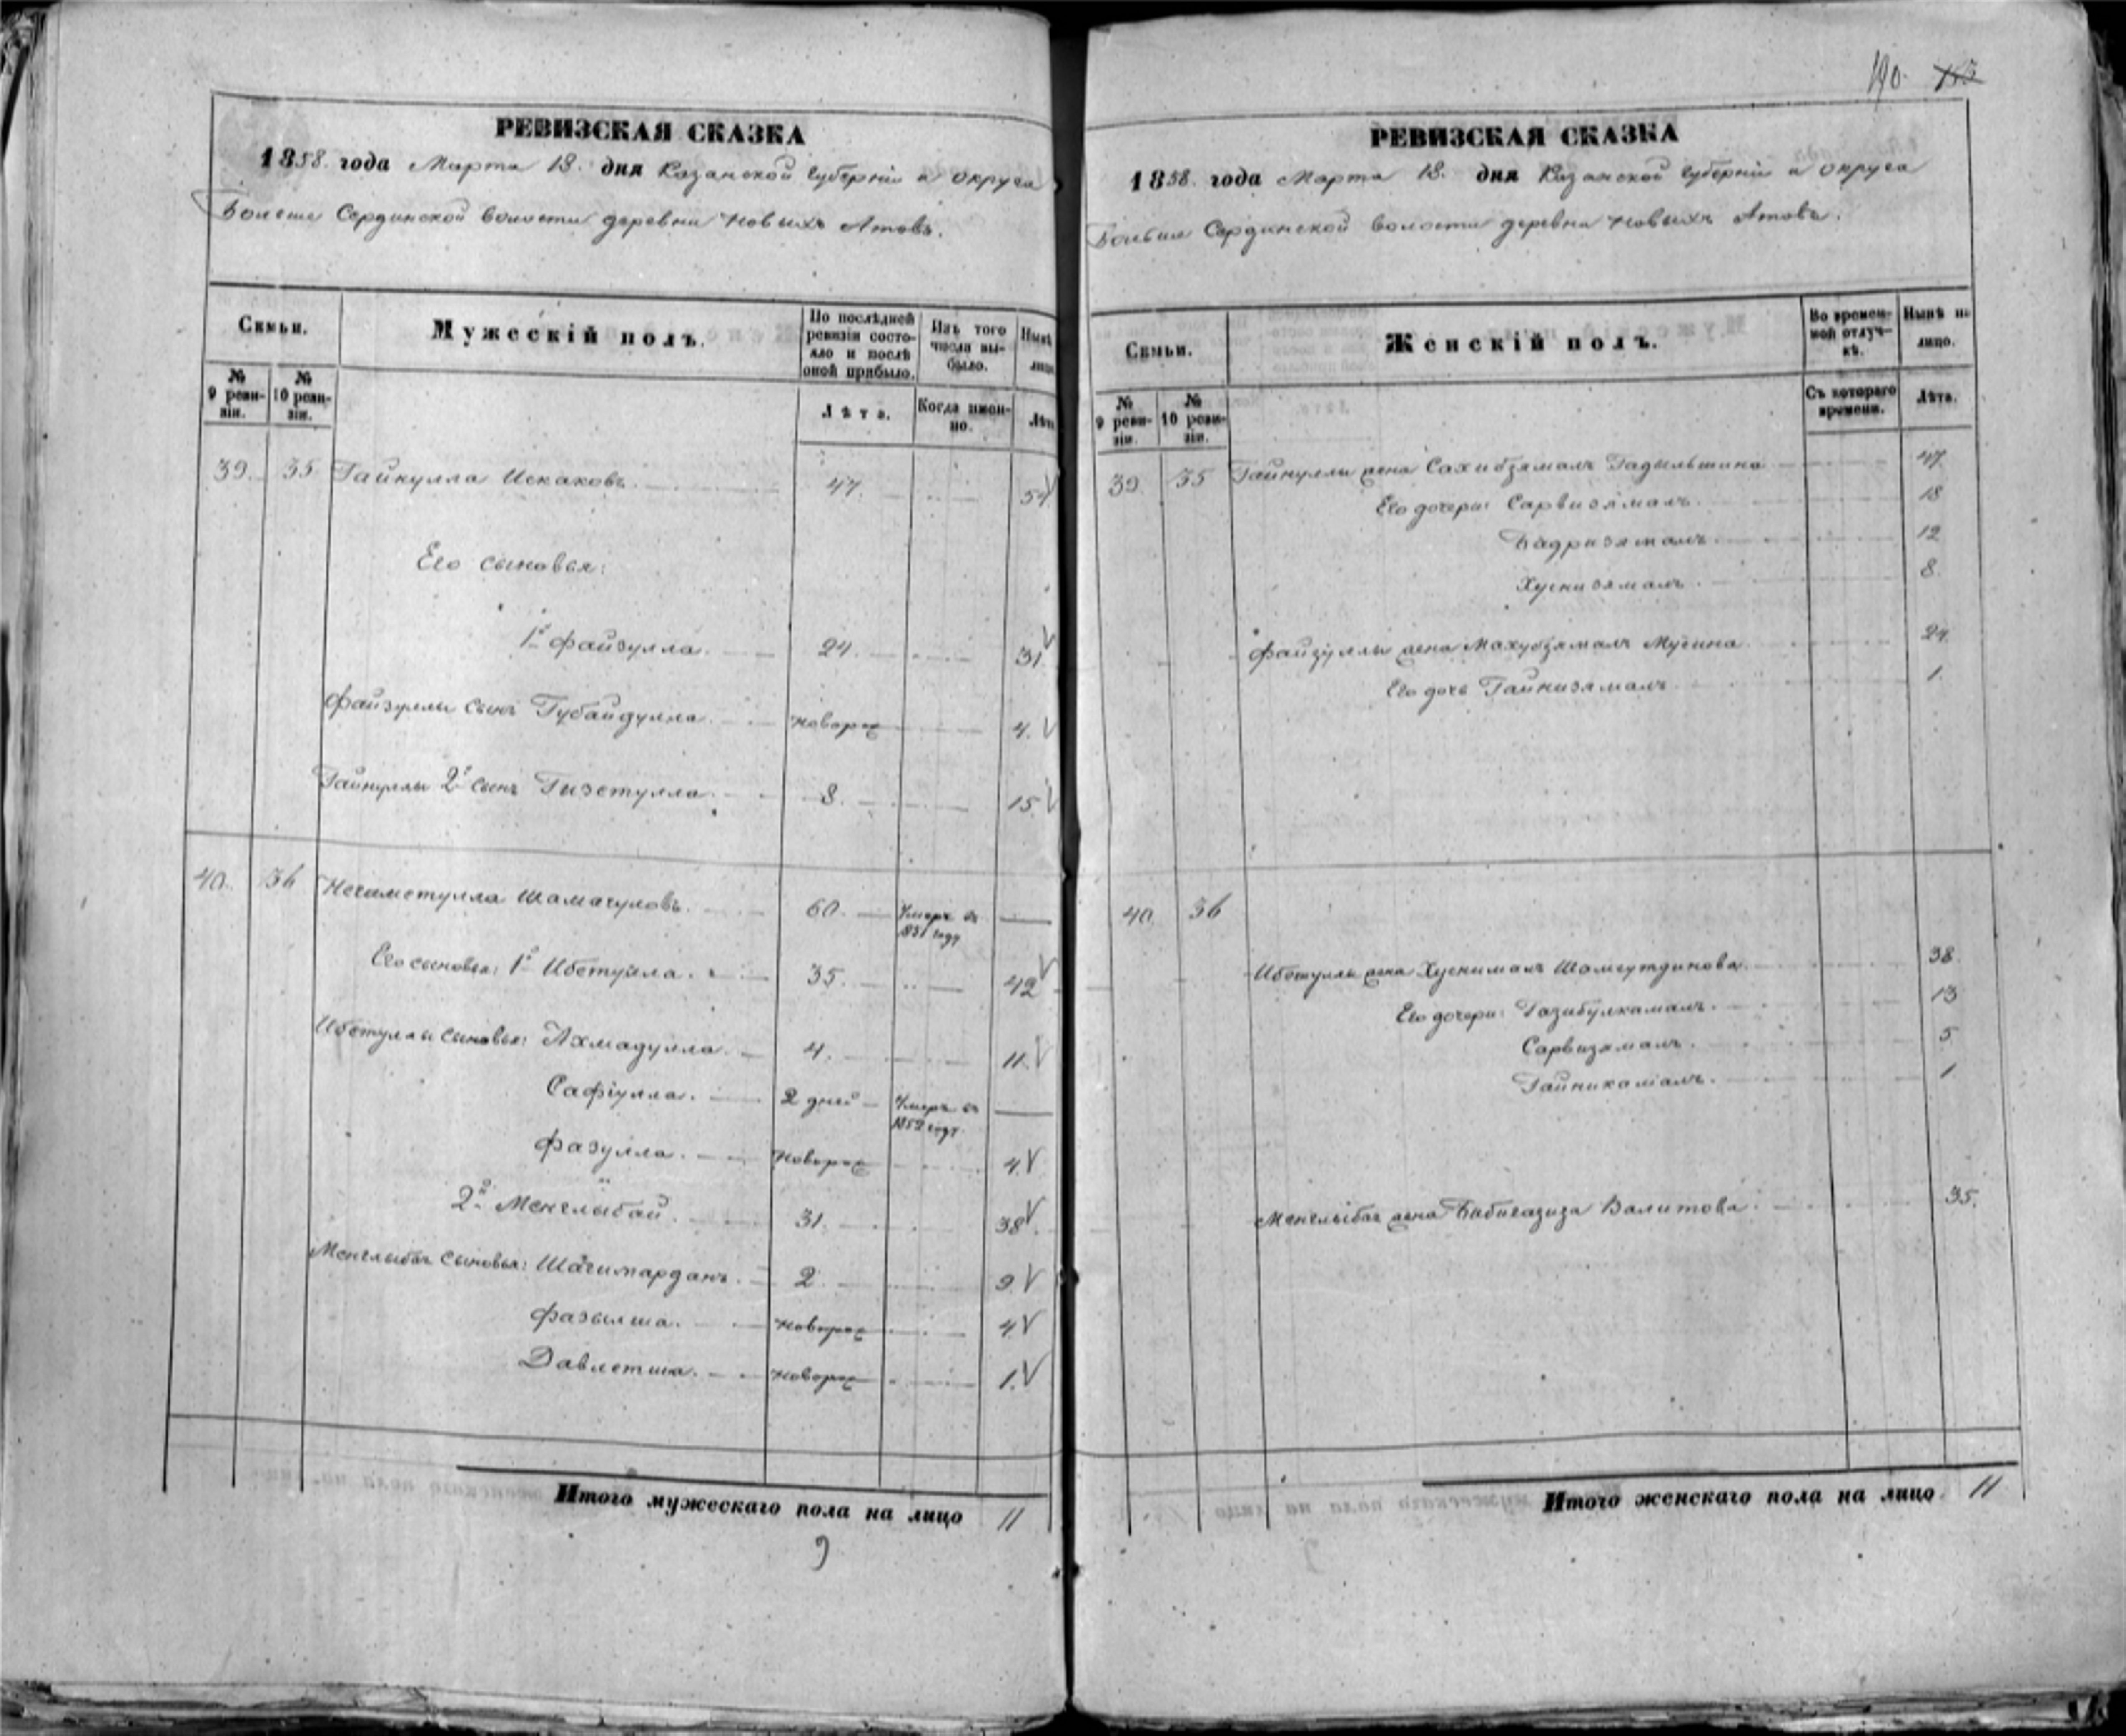 РЕВИЗСКАЯ СКАЗКА
1858. года Марта 18. дня Казанской губерніи и округа
Больше Сердинской волости деревни Новыхъ Атовъ.
Семьи.
Мужескій полъ.
По послѣдней ревизіи состояло и послѣ оной прибыло.
Изъ того числа выбыло.
Нынѣ
лицо
№ 9 ревизіи.
№ 10 ревизіи.
Лѣта.
Когда именно.
Лѣта
39. 35 Гайнулла Искаковъ. 47. 54
Его сыновья:
1й Файзулла. 24. 31
Файзуллы сынъ Губайдулла. новорож 4.
Гайнуллы 2й сынъ Гизетулла. 8. 15
40. 36 Негаметулла Шамагуловъ. 60. Умеръ въ 1851 году
Его сыновья: 1й Ибетулла. 35. 42
Ибетуллы сыновья: Ахмадулла. 4. 11.
Сафіулла. 2 дней Умеръ въ 1852 году.
Фазулла. новорож 4.
2й Менглыбай. 31. 38.
Менглыбая сыновья: Шагимарданъ. 2. 9
Фазылша. новорож 4
Давлетша. новорож 1.
Итого мужескаго пола на лицо 11
9
190. 153
РЕВИЗСКАЯ СКАЗКА
1858. года Марта 18. дня Казанской губерніи и округа
Больше Сердинской волости деревни Новыхъ Атовъ.
Семьи.
Женскій полъ.
Во временной отлучкѣ.
Нынѣ на лицо.
№ 9 ревизіи.
№ 10 ревизіи.
Съ котораго времени.
Лѣта.
39. 35 Гайнуллы жена Сахибзямалъ Гадыльшина 47.
Его дочери: Сарвизямалъ. 18
Бадризямалъ. 12
Хуснизямалъ. 8.
Файзуллы жена Махубзямалъ Мусина 24.
Его дочь Гайнизямалъ 1.
40. 36
Ибетуллы жена Хуснималъ Шамсутдинова. 38.
Его дочери: Газибулкамалъ. 13
Сарвизямалъ. 5
Гайникамалъ. 1.
Менглыбая жена Бибигазиза Валитова. 35.
Итого женскаго пола на лицо. 11